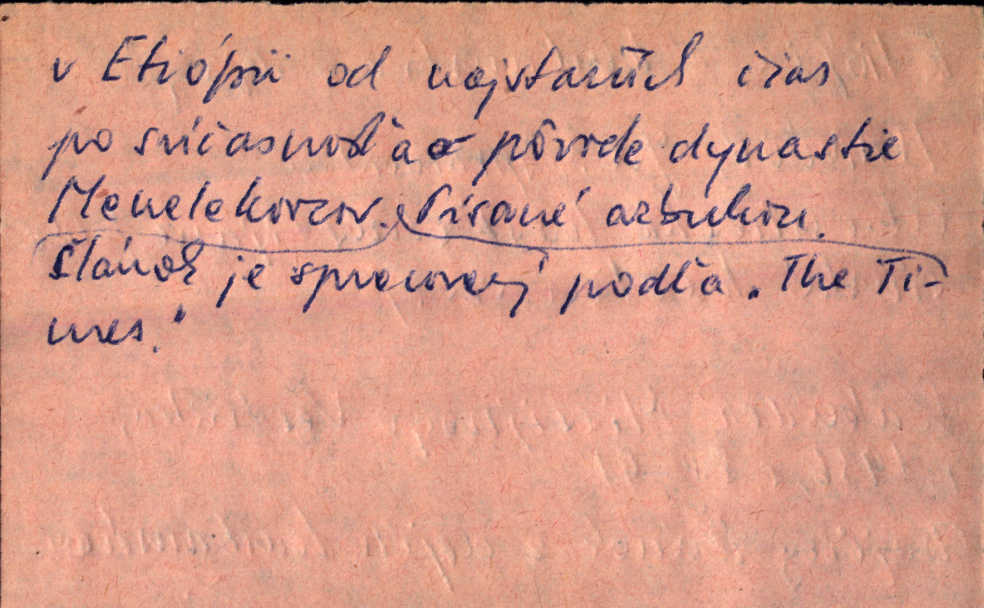 v Etiópii od najstarších čias
po súčasnosť a o pôvode dynastie
Menelekovcov. Písané azbukou.
Článok je spracovaný podľa „The Ti-
mes."